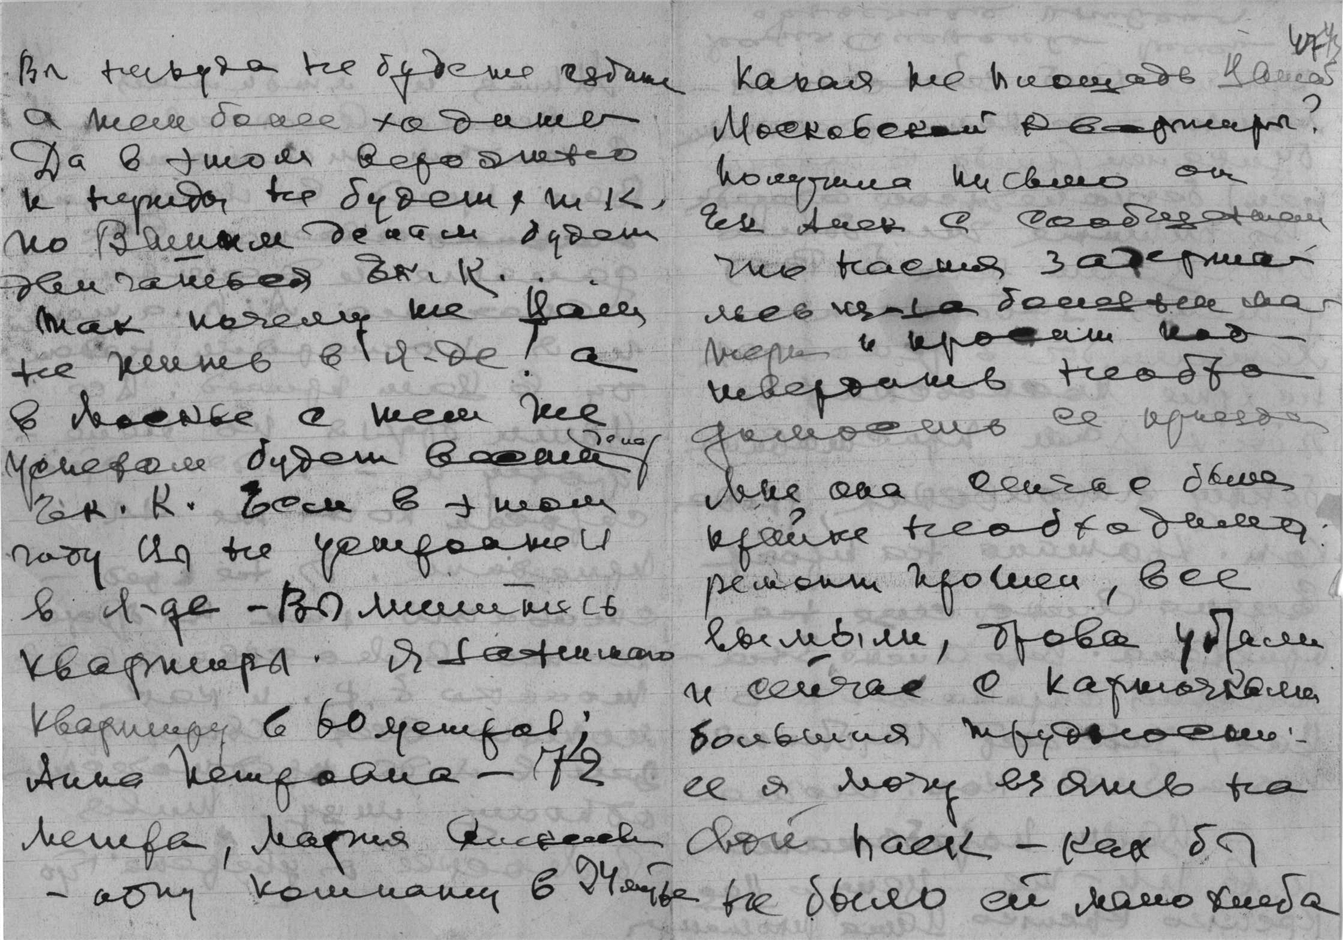 Вы никуда не будете ездить
а тем более ходить
Да в этом вероятно
и нужды не будет, т.к.
по Вашим делам будет
двигаться Ек. К.
Так почему же Вам
не жить в Л-де! а
в Москве с тем же
успехом будет
Ек. К. Если в этом
году Вы не устроитесь
в Л-де – Вы лишитесь
квартиры. Я занимаю
квартиру в 60 метров;
Анна Петровна – 72
метра, Мария
– одну комнату в 24
47
Какая же площадь Вашей
Московской квартиры?
Получила письмо от
Ек Алек с сообщением
что Настя задержа-
лась из-за болезни ма-
тери и просит под-
твердить необхо-
димость ее приезда
Мне она сейчас была
крайне необходима:
ремонт прошел, все
вымыли, дрова убрали
и сейчас с карточками
большия трудности:-
ее я могу взять на
свой паек – как бы
не было ей мало хлеба